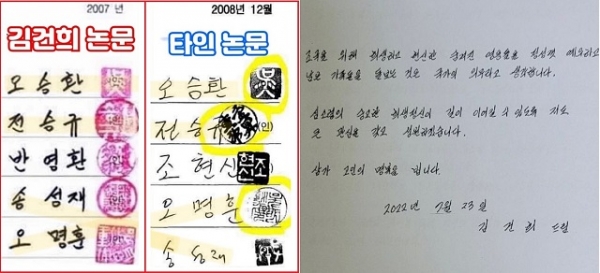 2007 년
김건희 논문
오승환
전승규
반영환
송성재
오명훈
2008년 12월
타인 논문
오승환
전승규 (인)
조현신 조현신
오명훈
송성재
조국을 위해 희생하고 헌신한 영웅들을 정성껏 예우하고
남은 가족들을 돌보는 것은 국가의 의무라고 생각합니다.
심소령의 숭고한 희생정신이 길이 이어질 수 있도록 저도
큰 관심을 갖고 실천하겠습니다.
삼가 고인의 명복을 빕니다.
2022년 7월 23일
김건희 드림